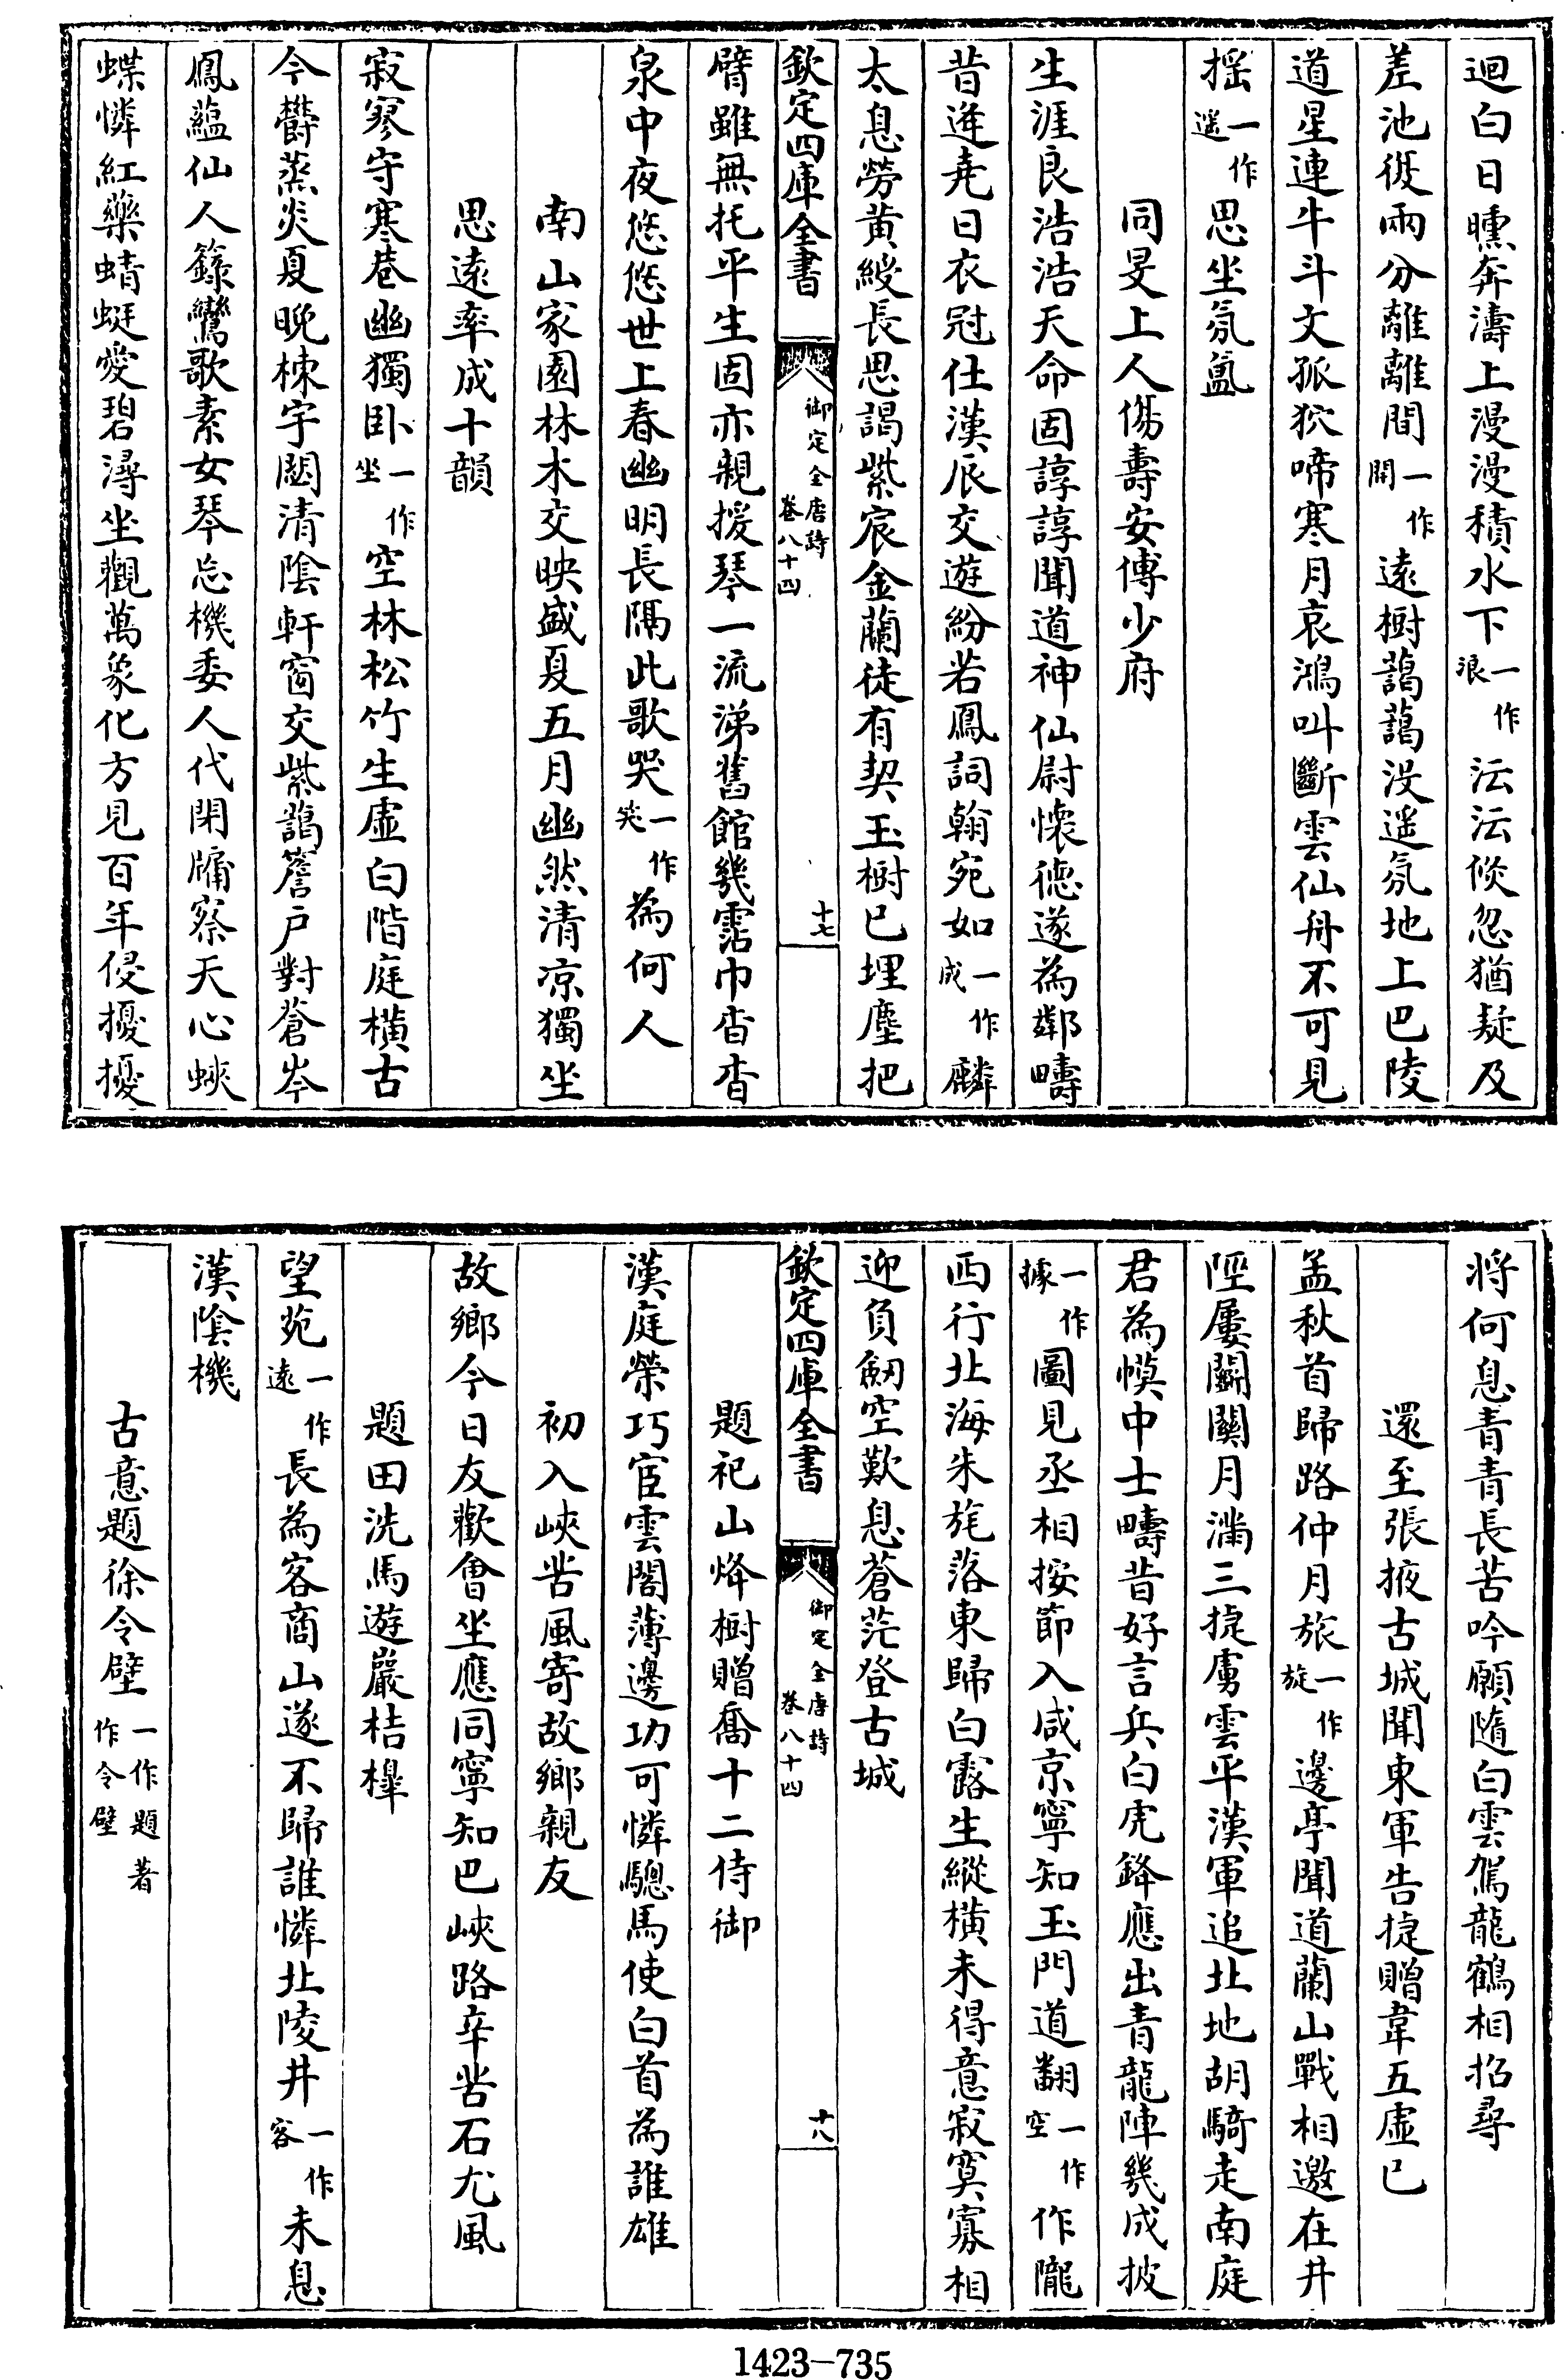 迴白日曛奔濤上漫漫積水下一作浪沄沄倐忽猶疑及
差池徯兩分離離間一作開遠樹藹藹没遥氛地上巴陵
道星連牛斗文孤狖啼寒月哀鴻叫斷雲仙舟不可見
揺一作遥思坐氛氲
同旻上人傷壽安傅少府
生涯良浩浩天命固諄諄聞道神仙尉懷徳遂為鄰疇
昔逄堯日衣冠仕漢辰交遊紛若鳳詞翰宛如一作成麟
太息勞黄綬長思謁紫宸金蘭徒有契玉樹已埋塵把
欽定四庫全書
御定全唐詩
卷八十四
十七
臂雖無托平生固亦親援琴一流涕舊館幾霑巾杳杳
泉中夜悠悠世上春幽明長隔此歌哭一作笑為何人
南山家園林木交映盛夏五月幽然清凉獨坐
思逺率成十韻
寂寥守寒巷幽獨卧一作坐空林松竹生虚白階庭横古
今鬱蒸炎夏晚棟宇閟清隂軒窗交紫藹簷戶對蒼岑
鳳藴仙人籙鸞歌素女琴忘機委人代閉牖察天心蛺
蝶憐紅藥蜻蜓愛碧潯坐觀萬象化方見百年侵擾擾
將何息青青長苦吟願隨白雲駕龍鶴相招尋
還至張掖古城聞東軍告捷贈韋五虚己
孟秋首歸路仲月旅一作旋邊亭聞道蘭山戰相邀在井
陘屢鬭關月滿三捷虜雲平漢軍追北地胡騎走南庭
君為幙中士疇昔好言兵白虎鋒應出青龍陣幾成披
一作據圖見丞相按節入咸京寧知玉門道翻一作空作隴
西行北海朱旄落東歸白露生縱横未得意寂寞寡相
迎負劒空歎息蒼茫登古城
欽定四庫全書
御定全唐詩
卷八十四
十八
題祀山烽樹贈喬十二侍御
漢庭榮巧宦雲閣薄邊功可憐驄馬使白首為誰雄
初入峽苦風寄故鄉親友
故鄉今日友歡㑹坐應同寧知巴峽路辛苦石尤風
題田洗馬遊巖桔槹
望苑一作逺長為客商山遂不歸誰憐北陵井一作客未息
漢隂機
古意題徐令壁一作題著作令壁
1423-735